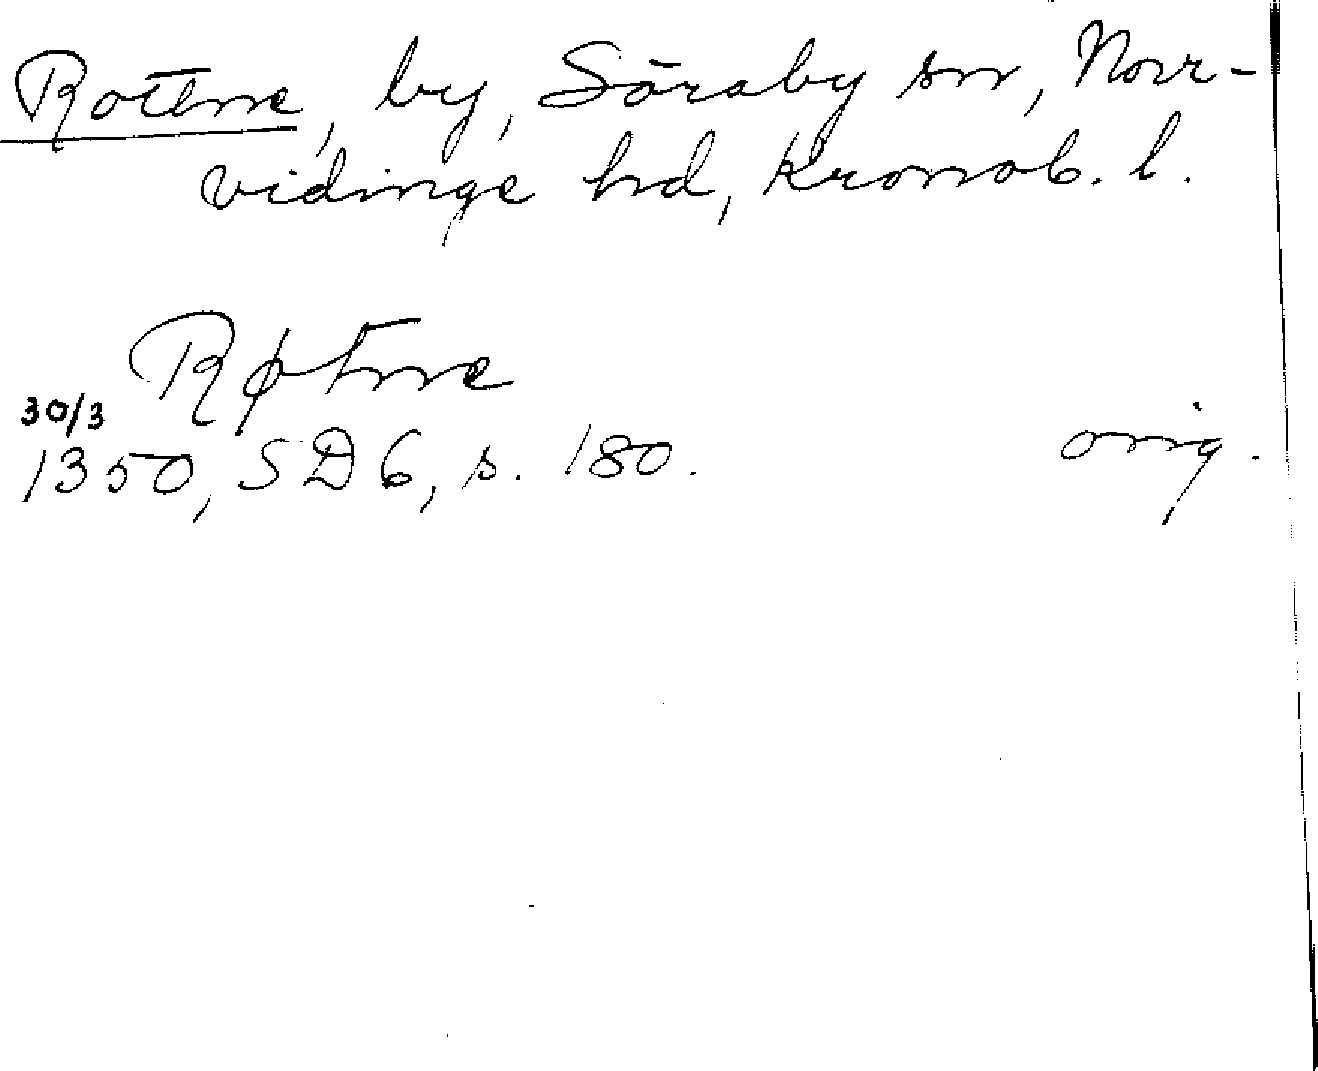 Rottne, by, Söraby sn, Norr-
vidinge hd, Kronob. l.
Røtne
30/3
1350, SD 6, s. 180. orig.